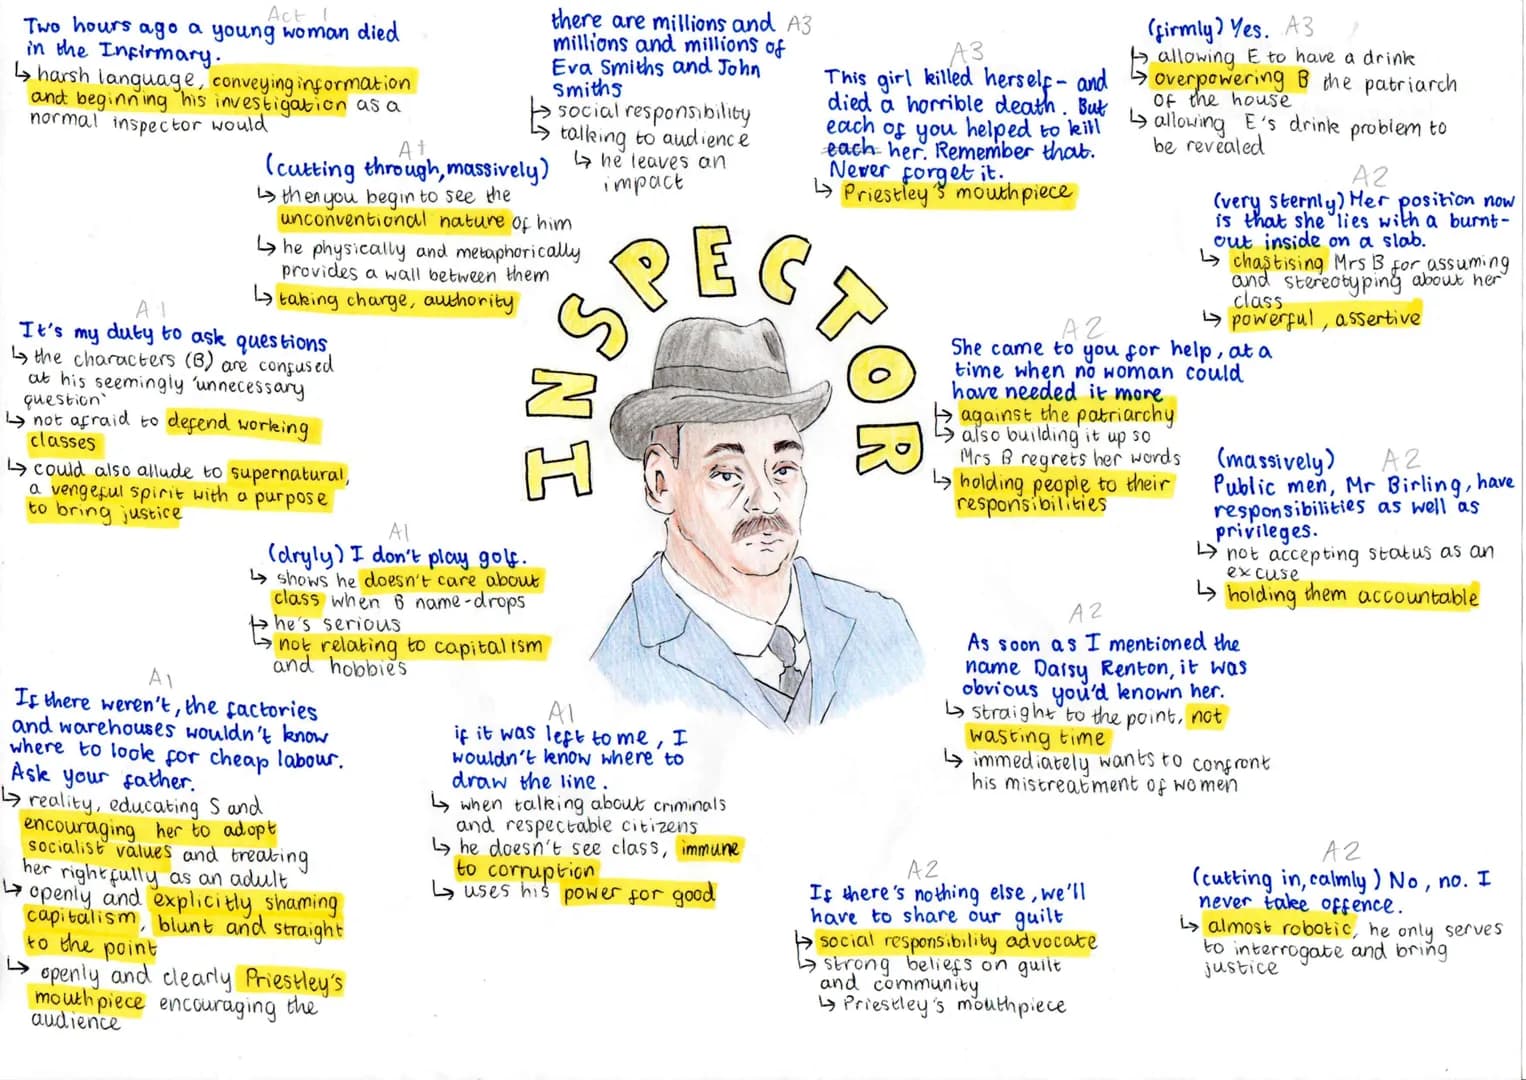 Act 1
Two hours ago a young woman died
in the Infirmary.
↳ harsh language, conveying information
and beginning his investigation as a
normal inspector would
A1
(cutting through, massively)
↳ then you begin to see the
unconventional nature of him
↳ he physically and metaphorically
provides a wall between them
↳ taking charge, authority
A1
It's my duty to ask questions
↳ the characters (B) are confused
at his seemingly 'unnecessary
question'
↳ not afraid to defend working
classes
↳ could also allude to supernatural,
a vengeful spirit with a purpose
to bring justice
A1
(dryly) I don't play golf.
↳ shows he doesn't care about
class when B name-drops
↳ he's serious
↳ not relating to capitalism
and hobbies
A1
If there weren't, the factories
and warehouses wouldn't know
where to look for cheap labour.
Ask your father.
↳ reality, educating S and
encouraging her to adopt
socialist values and treating
her rightfully as an adult
↳ openly and explicitly shaming
capitalism, blunt and straight
to the point
↳ openly and clearly Priestley's
mouthpiece encouraging the
audience
A1
if it was left to me, I
wouldn't know where to
draw the line.
↳ when talking about criminals
and respectable citizens
↳ he doesn't see class, immune
to corruption
↳ uses his power for good
INSPECTOR
there are millions and A3
millions and millions of
Eva Smiths and John
Smiths
↳ social responsibility
↳ talking to audience
↳ he leaves an
impact
A3
This girl killed herself - and
died a horrible death. But
each of you helped to kill
each her. Remember that.
Never forget it.
↳ Priestley's mouthpiece
(firmly) Yes. A3
↳ allowing E to have a drink
↳ overpowering B the patriarch
of the house
↳ allowing E's drink problem to
be revealed
A2
(very sternly) Her position now
is that she lies with a burnt-
out inside on a slab.
↳ chastising Mrs B for assuming
and stereotyping about her
class
↳ powerful, assertive
A2
She came to you for help, at a
time when no woman could
have needed it more
↳ against the patriarchy
↳ also building it up so
Mrs B regrets her words
↳ holding people to their
responsibilities
(massively) A2
Public men, Mr Birling, have
responsibilities as well as
privileges.
↳ not accepting status as an
excuse
↳ holding them accountable
A2
As soon as I mentioned the
name Daisy Renton, it was
obvious you'd known her.
↳ straight to the point, not
wasting time
↳ immediately wants to confront
his mistreatment of women
A2
If there's nothing else, we'll
have to share our guilt
↳ social responsibility advocate
↳ strong beliefs on guilt
and community
↳ Priestley's mouthpiece
A2
(cutting in, calmly) No, no. I
never take offence.
↳ almost robotic, he only serves
to interrogate and bring
justice